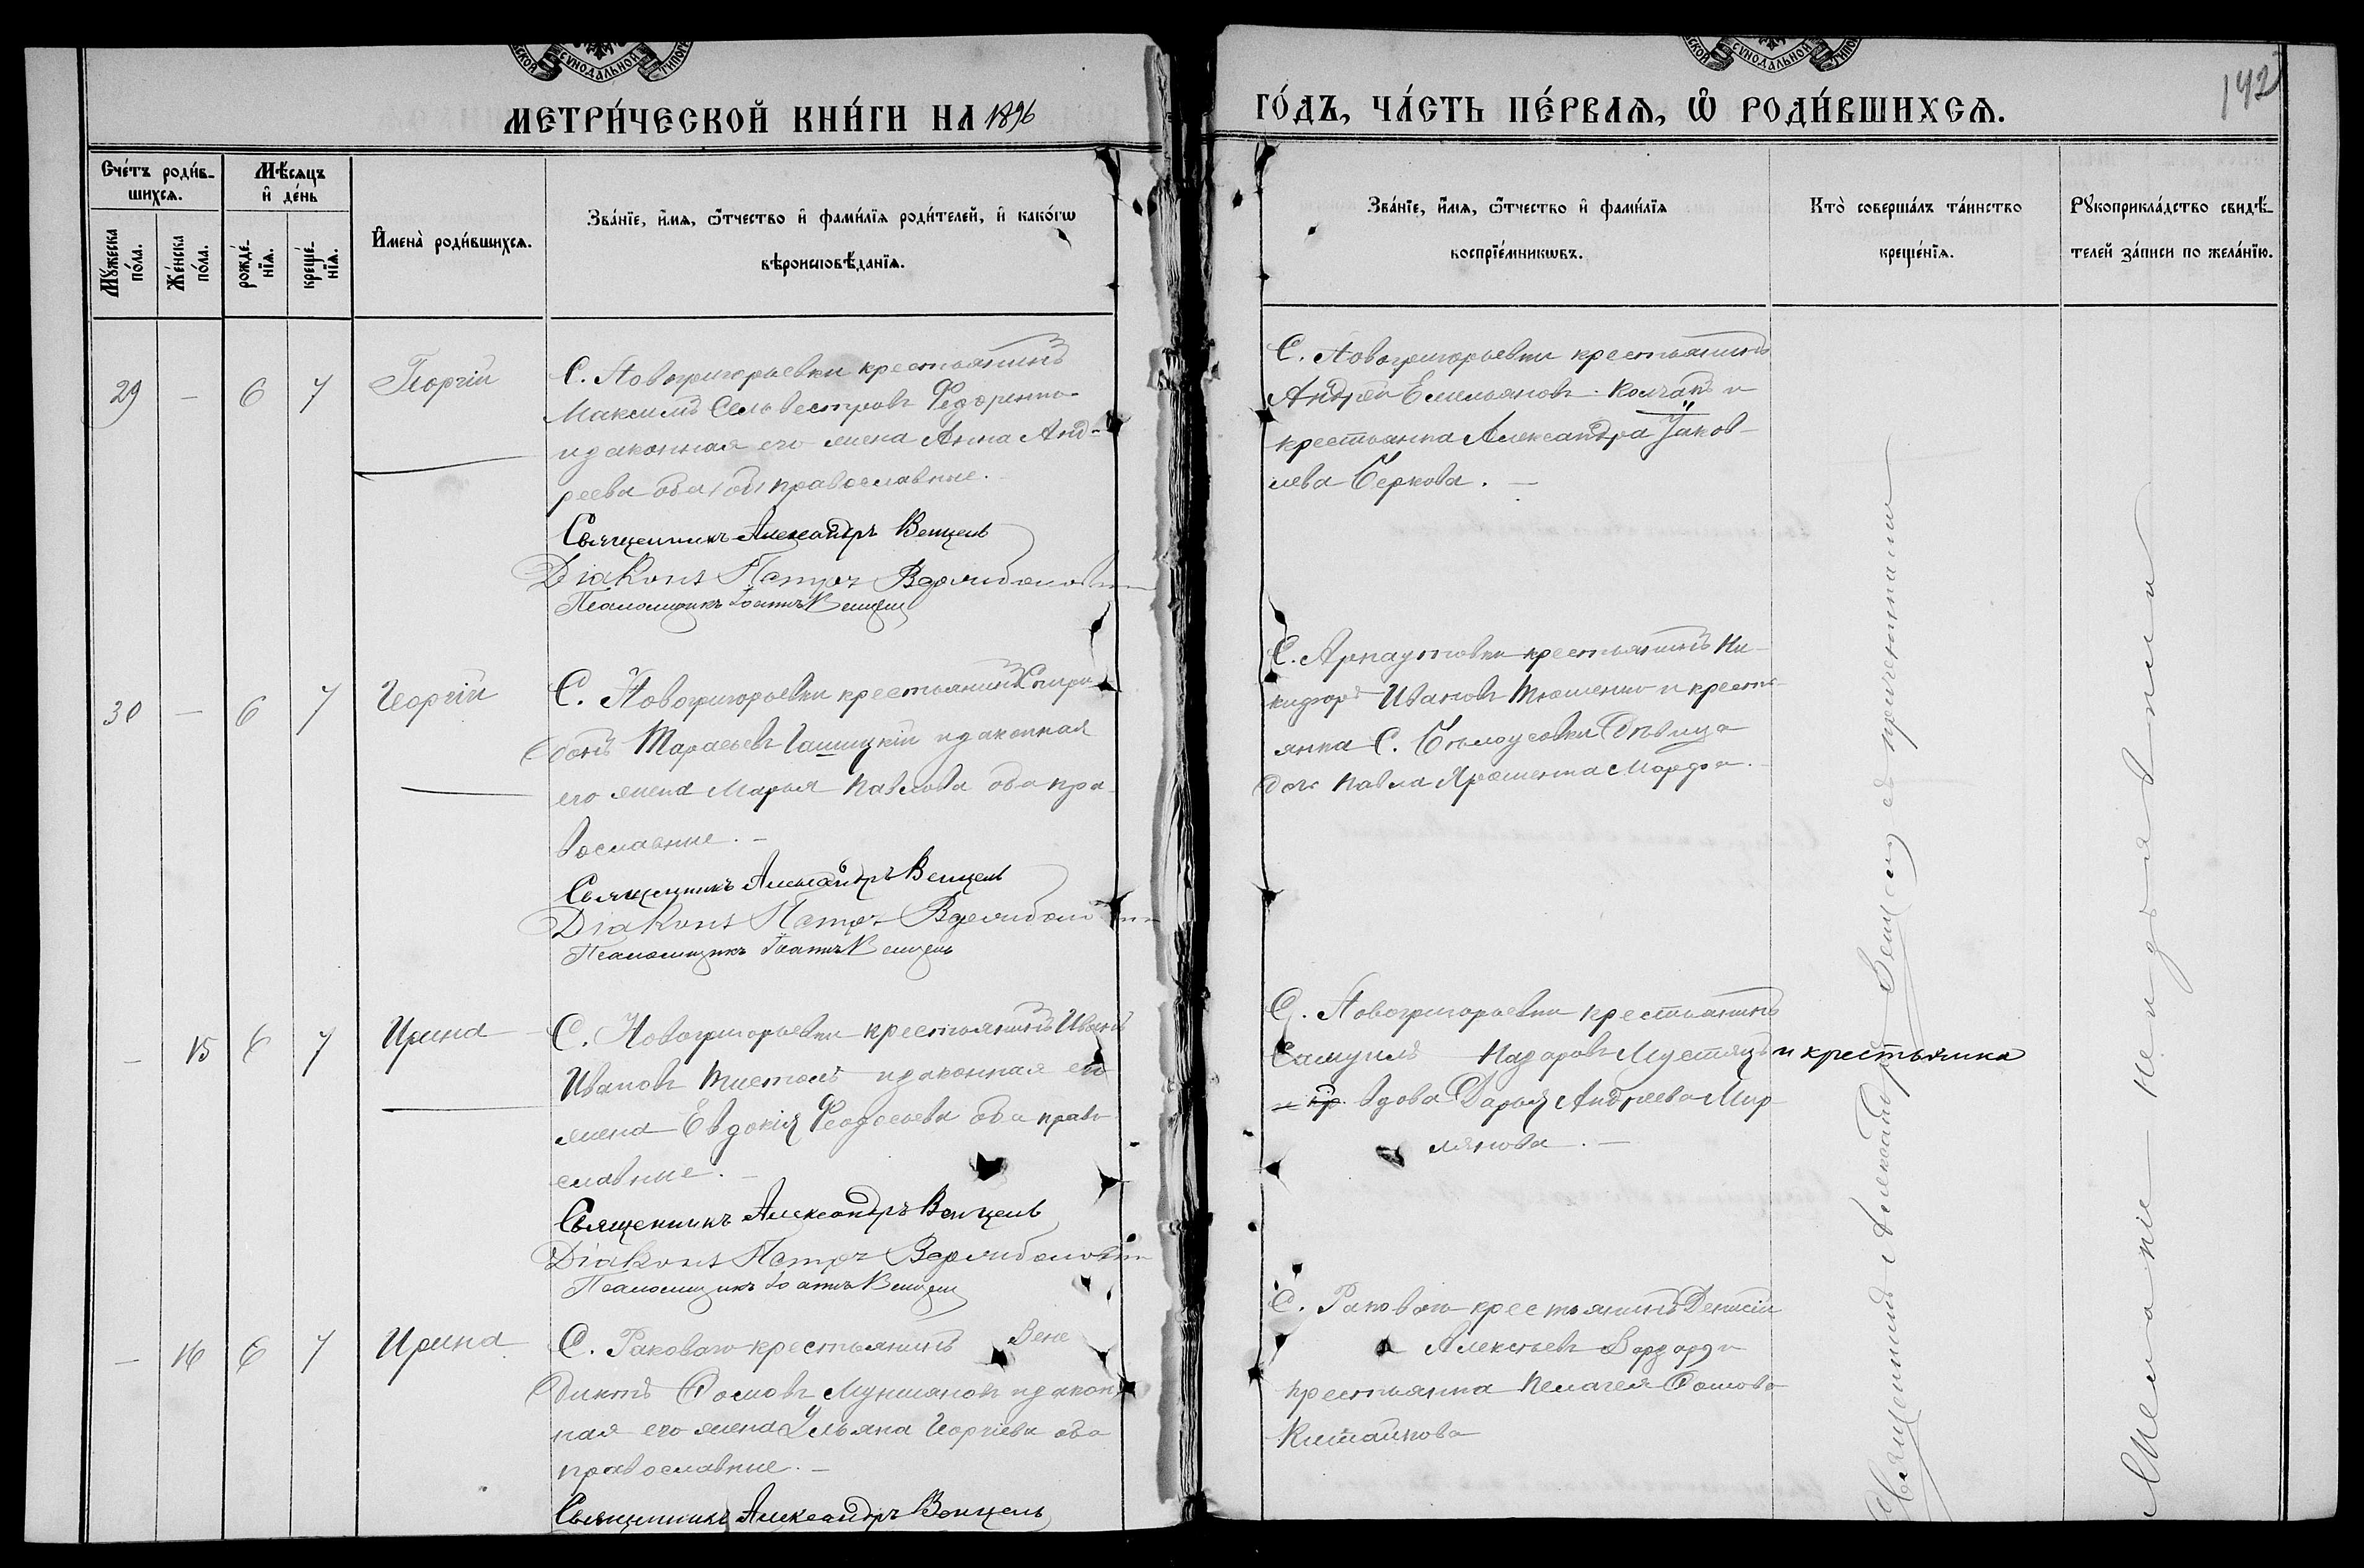 СУНОДАЛЬНОЙ
СУНОДАЛЬНОЙ
МЕТРИ́ЧЕСКОЙ КНИ́ГИ НА 1896
ГО́ДЪ, ЧА́СТЬ ПЕ́РВАѦ, Ѽ РОДИ́ВШИХСѦ.
142
Сче́тъ роди́в-
шихсѧ.
Мꙋ́жеска
по́ла.
Же́нска
по́ла.
Мѣ́сѧцъ
и҆ де́нь
рожде́-
нїѧ.
креще́-
нїѧ.
И҆мена̀ роди́вшихсѧ.
Зва́нїе, и҆́мѧ, ѻ҆́тчество и҆ фами́лїѧ роди́телей, и҆ како́гѡ
вѣроисповѣ́данїѧ.
Зва́нїе, и҆́мѧ, ѻ҆́тчество и҆ фами́лїѧ
воспрїе́мникѡвъ.
Кто̀ соверша́лъ та́инство
креще́нїѧ.
Рꙋкоприкла́дство свидѣ́-
телей за́писи по жела́нїю.
29 — 6 7 Георгій
С. Новогригорьевки крестьянинъ
Максимъ Сельвестровъ Федоренко
и законная его жена Анна Анд-
реева оба православные.
Священникъ Александръ Венцель
Діаконъ Петръ
Псаломщикъ Іоаннъ Венцель
С. Новогригорьевки крестьянинъ
Андрей Емельяновъ Колчакъ и
крестьянка Александра Яков-
лева Беркова. —
30 — 6 7 Георгій
С. Новогригорьевки крестьянинъ Спири-
донъ Тарасьевъ и законная
его жена Марья Павлова оба пра-
вославные. —
Священникъ Александръ Венцель
Діаконъ Петръ
Псаломщикъ Іоаннъ Венцель
С. Арнаутовки крестьянинъ Ни-
кифоръ Ивановъ Тюменко и кресть-
янка С. Бѣлоусовки дѣвица
дочь Павла Ярошенка Марфа. —
— 15 6 7 Ирина
С. Новогригорьевки крестьянинъ Иванъ
Ивановъ и законная его
жена Евдокія Феодосьева оба право-
славные. —
Священникъ Александръ Венцель
Діаконъ Петръ
Псаломщикъ Іоаннъ Венцель
С. Новогригорьевки крестьянинъ
Самуилъ Назаровъ Мустяцъ и крестьянка
и кр. вдова Дарья Андреева Мир-
лянова. —
— 16 6 7 Ирина
С. Раковаго крестьянинъ Вене
диктъ Фомовъ Мунтяновъ и закон-
ная его жена Ульяна Георгіева оба
православные. —
Священникъ Александръ Венцель
С. Раковаго крестьянинъ Денисій
Алексѣевъ и
крестьянка Пелагея Фомова
Китайкова
Священникъ Александръ Венцель съ причетниками
Желаніе не изъявили